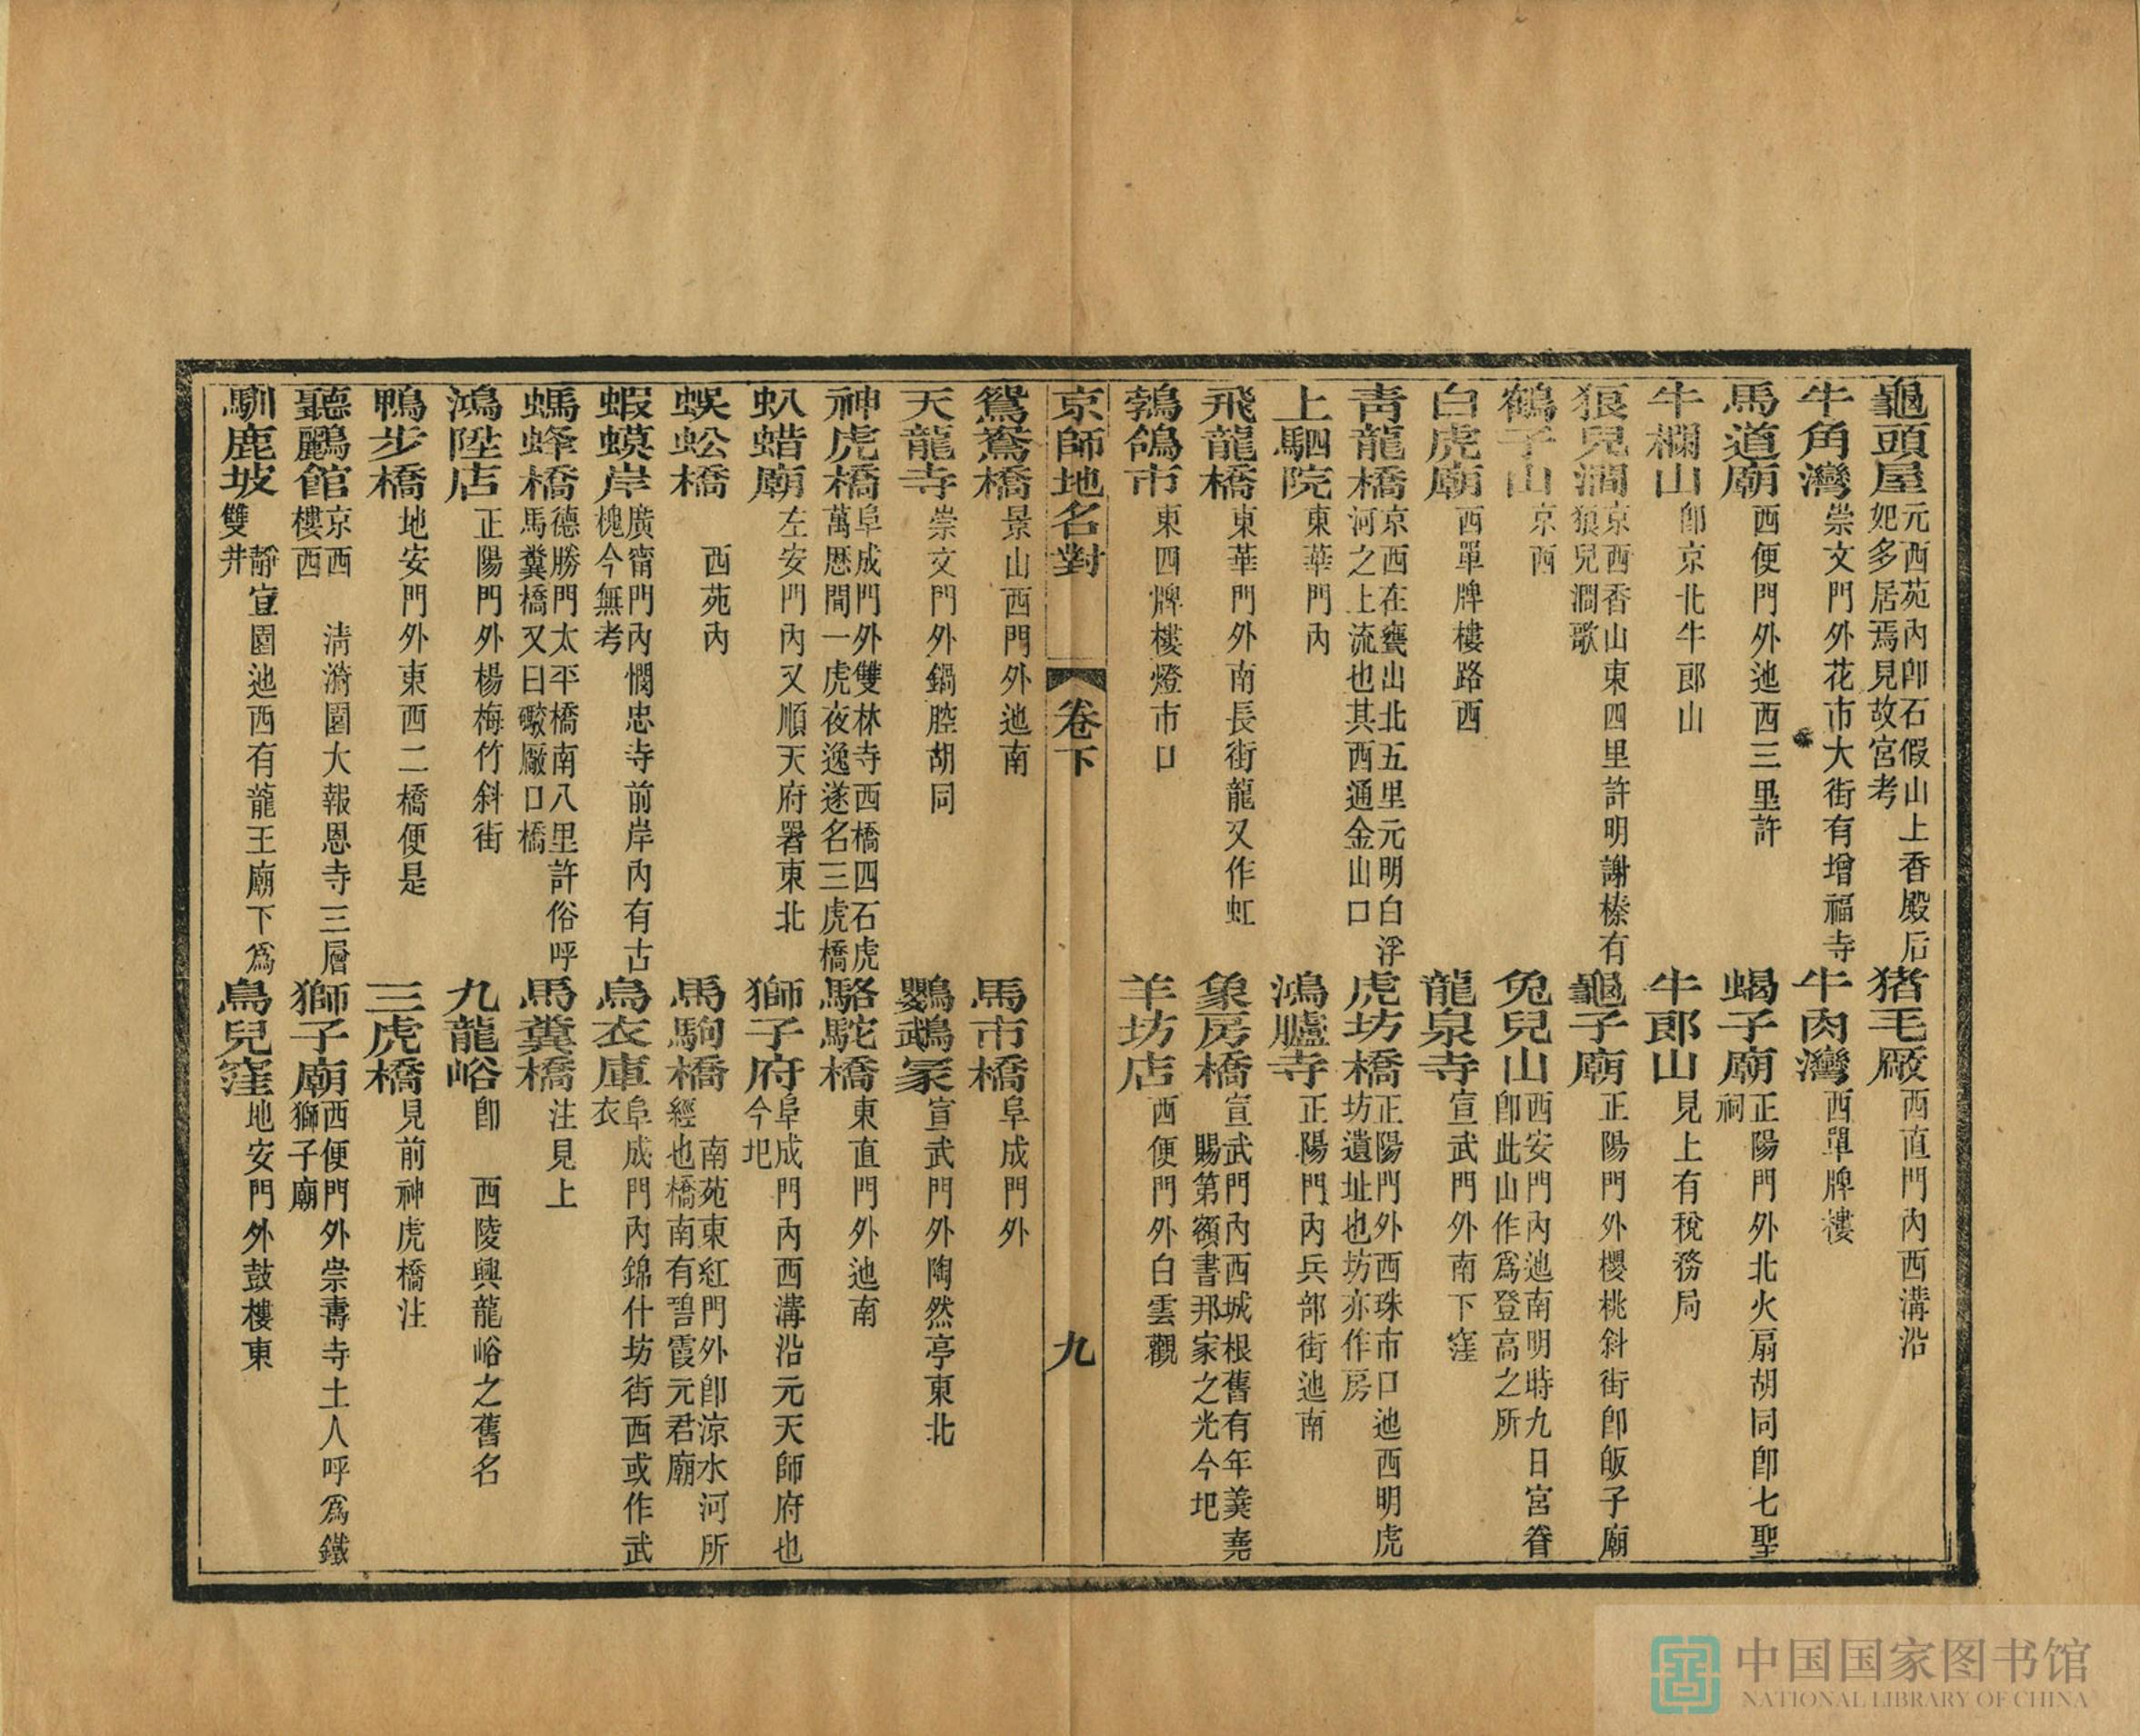 龜頭屋元西苑內卽石假山上香殿后妃多居焉見故宮考　猪毛厰西直門內西溝沿
牛角灣崇文門外花市大街有增福寺　牛肉灣西單牌樓
馬道廟西便門外迤西三里許　蝎子廟正陽門外北火扇胡同卽七聖祠
牛欄山卽京北牛郎山　牛郎山見上有稅務局
狼兒澗京西香山東四里許明謝榛有狼兒澗歌　龜子廟正陽門外櫻桃斜街卽皈子廟
鶴子山京西　兔兒山西安門內迤南明時九日宮眷卽此山作爲登高之所
白虎廟西單牌樓路西　龍泉寺宣武門外南下窪
青龍橋京西在甕出北五里元明白浮河之上流也其西通金山口　虎坊橋正陽門外西珠市口迤西明虎坊遺址也坊亦作房
上駟院東華門內　鴻臚寺正陽門內兵部街迤南
飛龍橋東華門外南長街龍又作虹　象房橋宣武門內西城根舊有年羹堯賜第額書邦家之光今圯
鵓鴿市東四牌樓燈市口　羊坊店西便門外白雲觀
京師地名對　卷下　九
鴛鴦橋景山西門外迤南　馬市橋阜成門外
天龍寺崇文門外鍋腔胡同　鸚鵡冢宣武門外陶然亭東北
神虎橋阜成門外雙林寺西橋四石虎萬歷間一虎夜逸遂名三虎橋　駱駝橋東直門外迤南
虮蜡廟左安門內又順天府署東北　獅子府阜成門內西溝沿元天師府也今圯
蜈蚣橋　西苑內　馬駒橋　南苑東紅門外卽涼水河所經也橋南有碧霞元君廟
蝦蟆岸廣甯門內憫忠寺前岸內有古槐今無考　烏衣庫阜成門內錦什坊街西或作武衣
螞蜂橋德勝門太平橋南八里許俗呼馬糞橋又曰礮厰口橋　馬糞橋注見上
鴻陞店正陽門外楊梅竹斜街　九龍峪卽　西陵興龍峪之舊名
鴨步橋地安門外東西二橋便是　三虎橋見前神虎橋注
聽鸝館京西　淸漪園大報恩寺三層樓西　獅子廟西便門外崇壽寺土人呼爲鐵獅子廟
馴鹿坡　靜宜園迤西有龍王廟下爲雙井　鳥兒窪地安門外鼓樓東
中国国家图书馆
NATIONAL LIBRARY OF CHINA